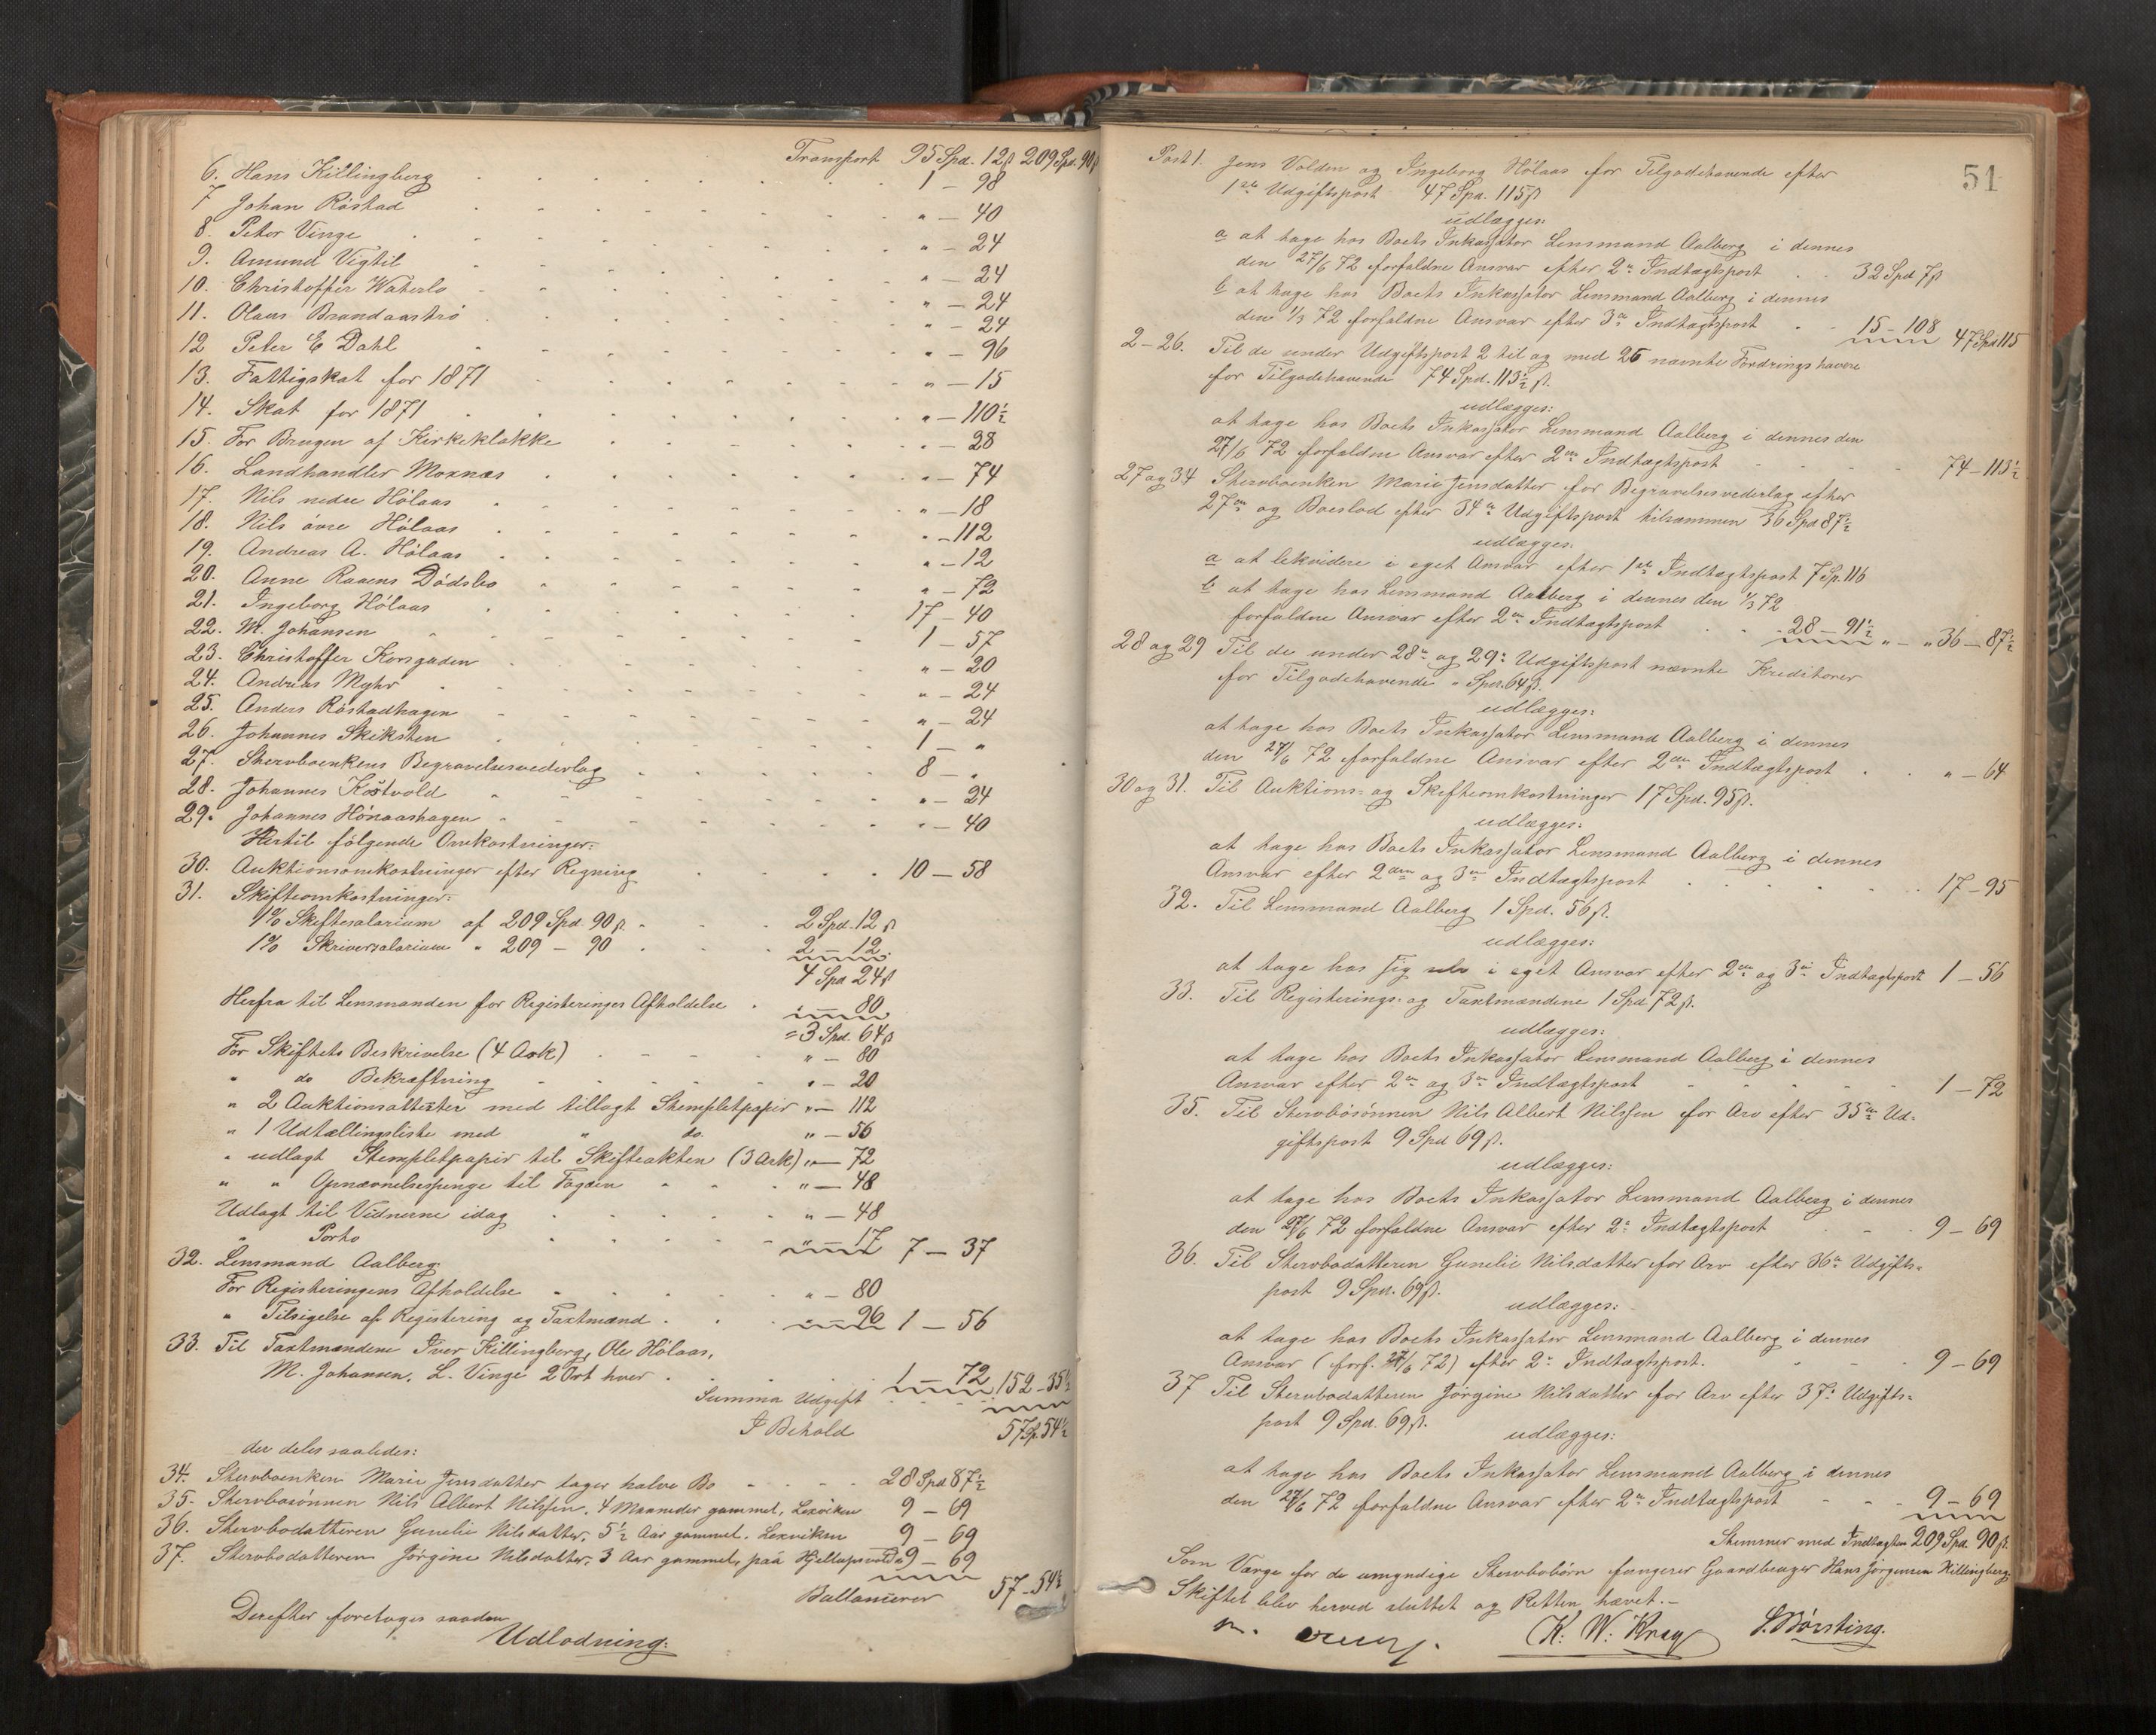 Transport 95 Spd. 12 ß 209 Spd. 90 ß
6. Hans Killingberg . . . 1 – 98
7 Johan Röstad . . . " – 40
8. Peter Vinge . . . " – 24
9. Amund Vigtil . . . " – 24
10. Christoffer Waterlo . . . " – 24
11. Olaus Brandaaströ . . . " – 24
12 Peter E Dahl . . . " – 96
13. Fattigskat for 1871 . . . " – 15
14. Skat for 1871 . . . " – 110½
15. For Brugen af Kirkeklokke . . . " – 28
16. Landhandler Moxnæs . . . " – 74
17. Nils nedre Hölaas . . . " – 18
18. Nils övre Hölaas . . . " – 112
19. Andreas A. Hölaas . . . " – 12
20. Anne Raaens Dödsbo . . . " – 72
21. Ingeborg Hölaas . . . 17 – 40
22. M. Johansen . . . 1 – 57
23. Christoffer Korsgaden . . . " – 20
24. Andreas Myhr . . . " – 24
25. Anders Röstadhagen . . . " – 24
26. Johannes Skiksten . . . 1 – "
27. Stervboenkens Begravelsesvederlag . . . 8 – "
28. Johannes Köstvold . . . " – 24
29. Johannes Hönaashagen . . . " – 40
Hertil fölgende Omkostninger:
30. Auktionsomkostninger efter Regning . . . 10 – 58
31. Skifteomkostninger:
1% Skiftesalarium af 209 Spd. 90 ß . . . 2 Spd. 12 ß
1% Skriversalarium " 209 – 90 . . . 2 – 12
4 Spd 24 ß
Herfra til Lensmanden for Registeringes Afholdelse . " – 80
= 3 Spd. 64 ß
For Skiftets Beskrivelse (4 Ark) . . . " – 80
" do Bekræftning . . . " – 20
" 2 Auktionsattester med tillagt Stempletpapir " – 112
" 1 Udtællingsliste med " do. " – 56
" udlagt Stempletpapir til Skifteakten (3 Ark) " – 72
" " Opnævnelsespenge til Fogden . . . " – 48
Udlagt til Vidnerne idag . . . " – 48
" Porto . . . " – 17 7 – 37
32. Lensmand Aalberg
For Registeringens Afholdelse . . . " – 80
" Tilsigelse af Registering og Taxtmænd . . . " – 96 1 – 56
33. Til Taxtmændene Iver Killingberg, Ole Hölaas,
M. Johansen, L. Vinge 2 Ort hver . . . 1 – 72 152 – 35½
Summa Udgift
I Behold 57 Sp. 54½
der deles saaledes:
34. Stervboenken Marie Jensdatter tager halve Bo . . . 28 Spd 87½
35. Stervbosönnen Nils Albert Nilssen, 4 Maaneder gammel, Lexviken 9 – 69
36. Stervbodatteren Gunelie Nilsdatter, 5½ Aar gammel, Lexviken 9 – 69
37. Stervbodatteren Jörgine Nilsdatter, 3 Aar gammel, paa 9 – 69
Ballancerer 57 – 54½
Derefter foretoges saadan
Udlodning:
51
Post 1. Jens Volden og Ingeborg Hölaas for Tilgodehavende efter
1ste Udgiftspost 47 Spd. 115 ß
udlægges:
a at tage hos Boets Inkassator Lensmand Aalberg i dennes
den 27/6 72 forfaldne Ansvar efter 2n Indtægtspost . . 32 Spd 7 ß
b at tage hos Boets Inkassator Lensmand Aalberg i dennes
den 1/3 72 forfaldne Ansvar efter 3n Indtægtspost . . 15 – 108 47 Spd 115
2 – 26. Til de under Udgiftspost 2 til og med 26 nævnte Fordringshavere
for Tilgodehavende 74 Spd. 113½ ß.
udlægges:
at tage hos Boets Inkassator Lensmand Aalberg i dennes den
27/6 72 forfaldne Ansvar efter 2en Indtægtspost . . . 74 – 113½
27 og 34 Stervboenken Marie Jensdatter for Begravelsesvederlag efter
27en og Boeslod efter 34n Udgiftspost tilsammen 36 Spd 87½
udlægges:
a at likvidere i eget Ansvar efter 1ste Indtægtspost 7 Sp. 116
b at tage hos Lensmand Aalberg i dennes den 1/3 72
forfaldne Ansvar efter 2en Indtægtspost . . . 28 – 91½ " – " 36 – 87½
28 og 29 Til de under 28n og 29n Udgiftspost nævnte Kreditorer
for Tilgodehavende " Spd. 64 ß.
udlægges:
at tage hos Boets Inkassator Lensmand Aalberg i dennes
den 27/6 72 forfaldne Ansvar efter 2den Indtægtspost . . " – 64
30 og 31. Til Auktions- og Skifteomkostninger 17 Spd. 95 ß.
udlægges:
at tage hos Boets Inkassator Lensmand Aalberg i dennes
Ansvar efter 2den og 3n Indtægtspost . . . 17 – 95
32. Til Lensmand Aalberg 1 Spd. 56 ß.
udlægges:
at tage hos sig selv i eget Ansvar efter 2en og 3n Indtægtspost 1 – 56
33. Til Registerings- og Taxtmændene 1 Spd 72 ß.
udlægges:
at tage hos Boets Inkassator Lensmand Aalberg i dennes
Ansvar efter 2en og 3n Indtægtspost . . . 1 – 72
35. Til Stervbosönnen Nils Albert Nilssen for Arv efter 35te Ud-
giftspost 9 Spd 69 ß.
udlægges:
at tage hos Boets Inkassator Lensmand Aalberg i dennes
den 27/6 72 forfaldne Ansvar efter 2n Indtægtspost . . . 9 – 69
36. Til Stervbodatteren Gunelie Nilsdatter for Arv efter 36n Udgifts-
post 9 Spd. 69 ß.
udlægges:
at tage hos Boets Inkassator Lensmand Aalberg i dennes
Ansvar (forf. 27/6 72) efter 2n Indtægtspost. . . . 9 – 69
37 Til Stervbodatteren Jörgine Nilsdatter for Arv efter 37n Udgifts-
post 9 Spd. 69 ß.
udlægges:
at tage hos Boets Inkassator Lensmand Aalberg i dennes
den 27/6 72 forfaldne Ansvar efter 2n Indtægtspost . . . 9 – 69
Stemmer med Indtægten 209 Spd. 90 ß.
Som Værge for de umyndige Stervbobörn fungerer Gaardbruger Hans Jörgensen Killingberg.
Skiftet blev herved sluttet og Retten hævet. –
K. W. Krag S. Börsting.